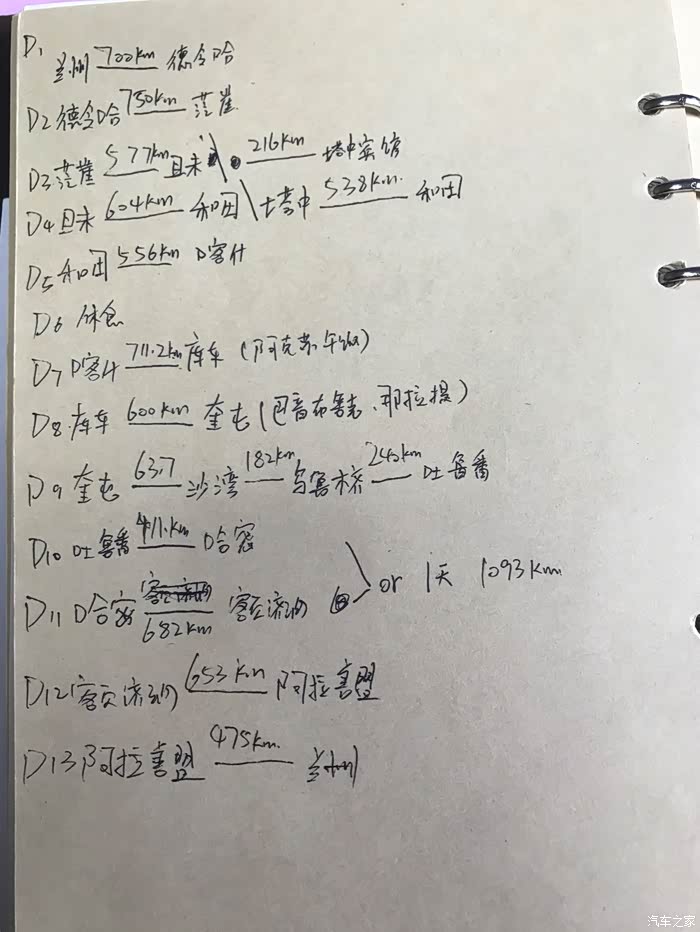 D1 兰州 700km 德令哈
D2 德令哈 750km 茫崖
D3 茫崖 577km 且末 \ 216km 塔中宾馆
D4 且末 604km 和田 \ 塔中 538km. 和田
D5 和田 556km 喀什
D6 休息
D7 喀什 711.2km 库车 (阿克苏午饭)
D8 库车 600km 奎屯 (巴音布鲁克、那拉提)
D9 奎屯 63.7 沙湾 182km 乌鲁木齐 240km 吐鲁番
D10 吐鲁番 411.km 哈密
D11 哈密 682km 额济纳 or 1天 1093km
D12 额济纳 653km 阿拉善盟
D13 阿拉善盟 475km. 兰州
汽车之家